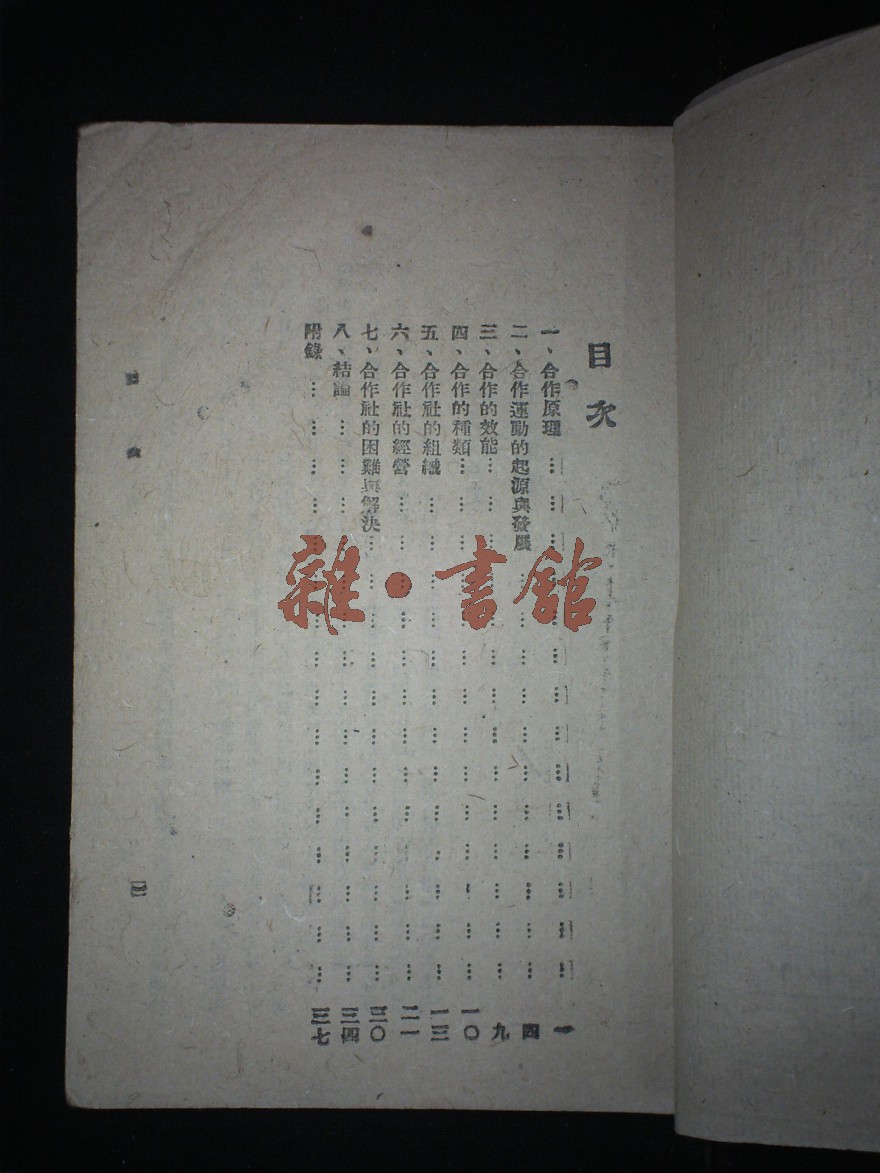 目次
一、合作原理……………………………………一
二、合作運動的起源與發展……………………………………四
三、合作的效能……………………………………九
四、合作的種類……………………………………一〇
五、合作社的組織……………………………………一三
六、合作社的經營……………………………………二一
七、合作社的困難與解決……………………………………三〇
八、結論……………………………………三四
附錄……………………………………三七
雜·書館